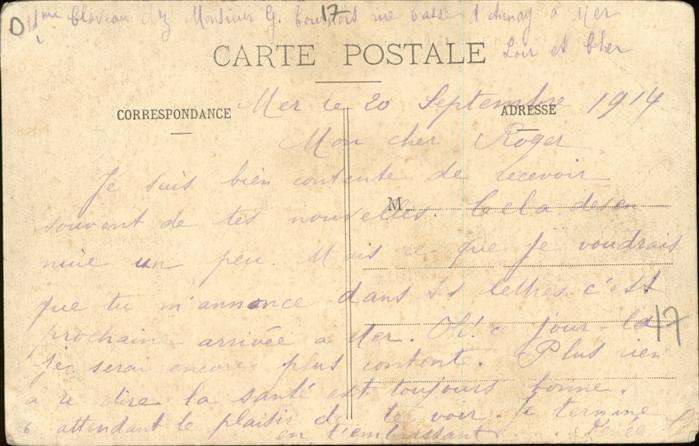 Mme Claveau chez Monsieur G. rue basse d'Aunay à Mer
17
CARTE POSTALE
Loir et Cher
CORRESPONDANCE
ADRESSE
Mer le 20 Septembre 1914
Mon cher Roger
Je suis bien contente de recevoir
souvent de tes nouvelles. Cela desen
M
nuie un peu. Mais ce que je voudrais
que tu m'annonce dans ts lettres c'est
prochaine arrivée à Mer. Oh! ce jour là
17
Je serai encore plus contente. Plus rien
à te dire la santé est toujours bonne.
attendant le plaisir de te voir. Je termine
en t'embrassant